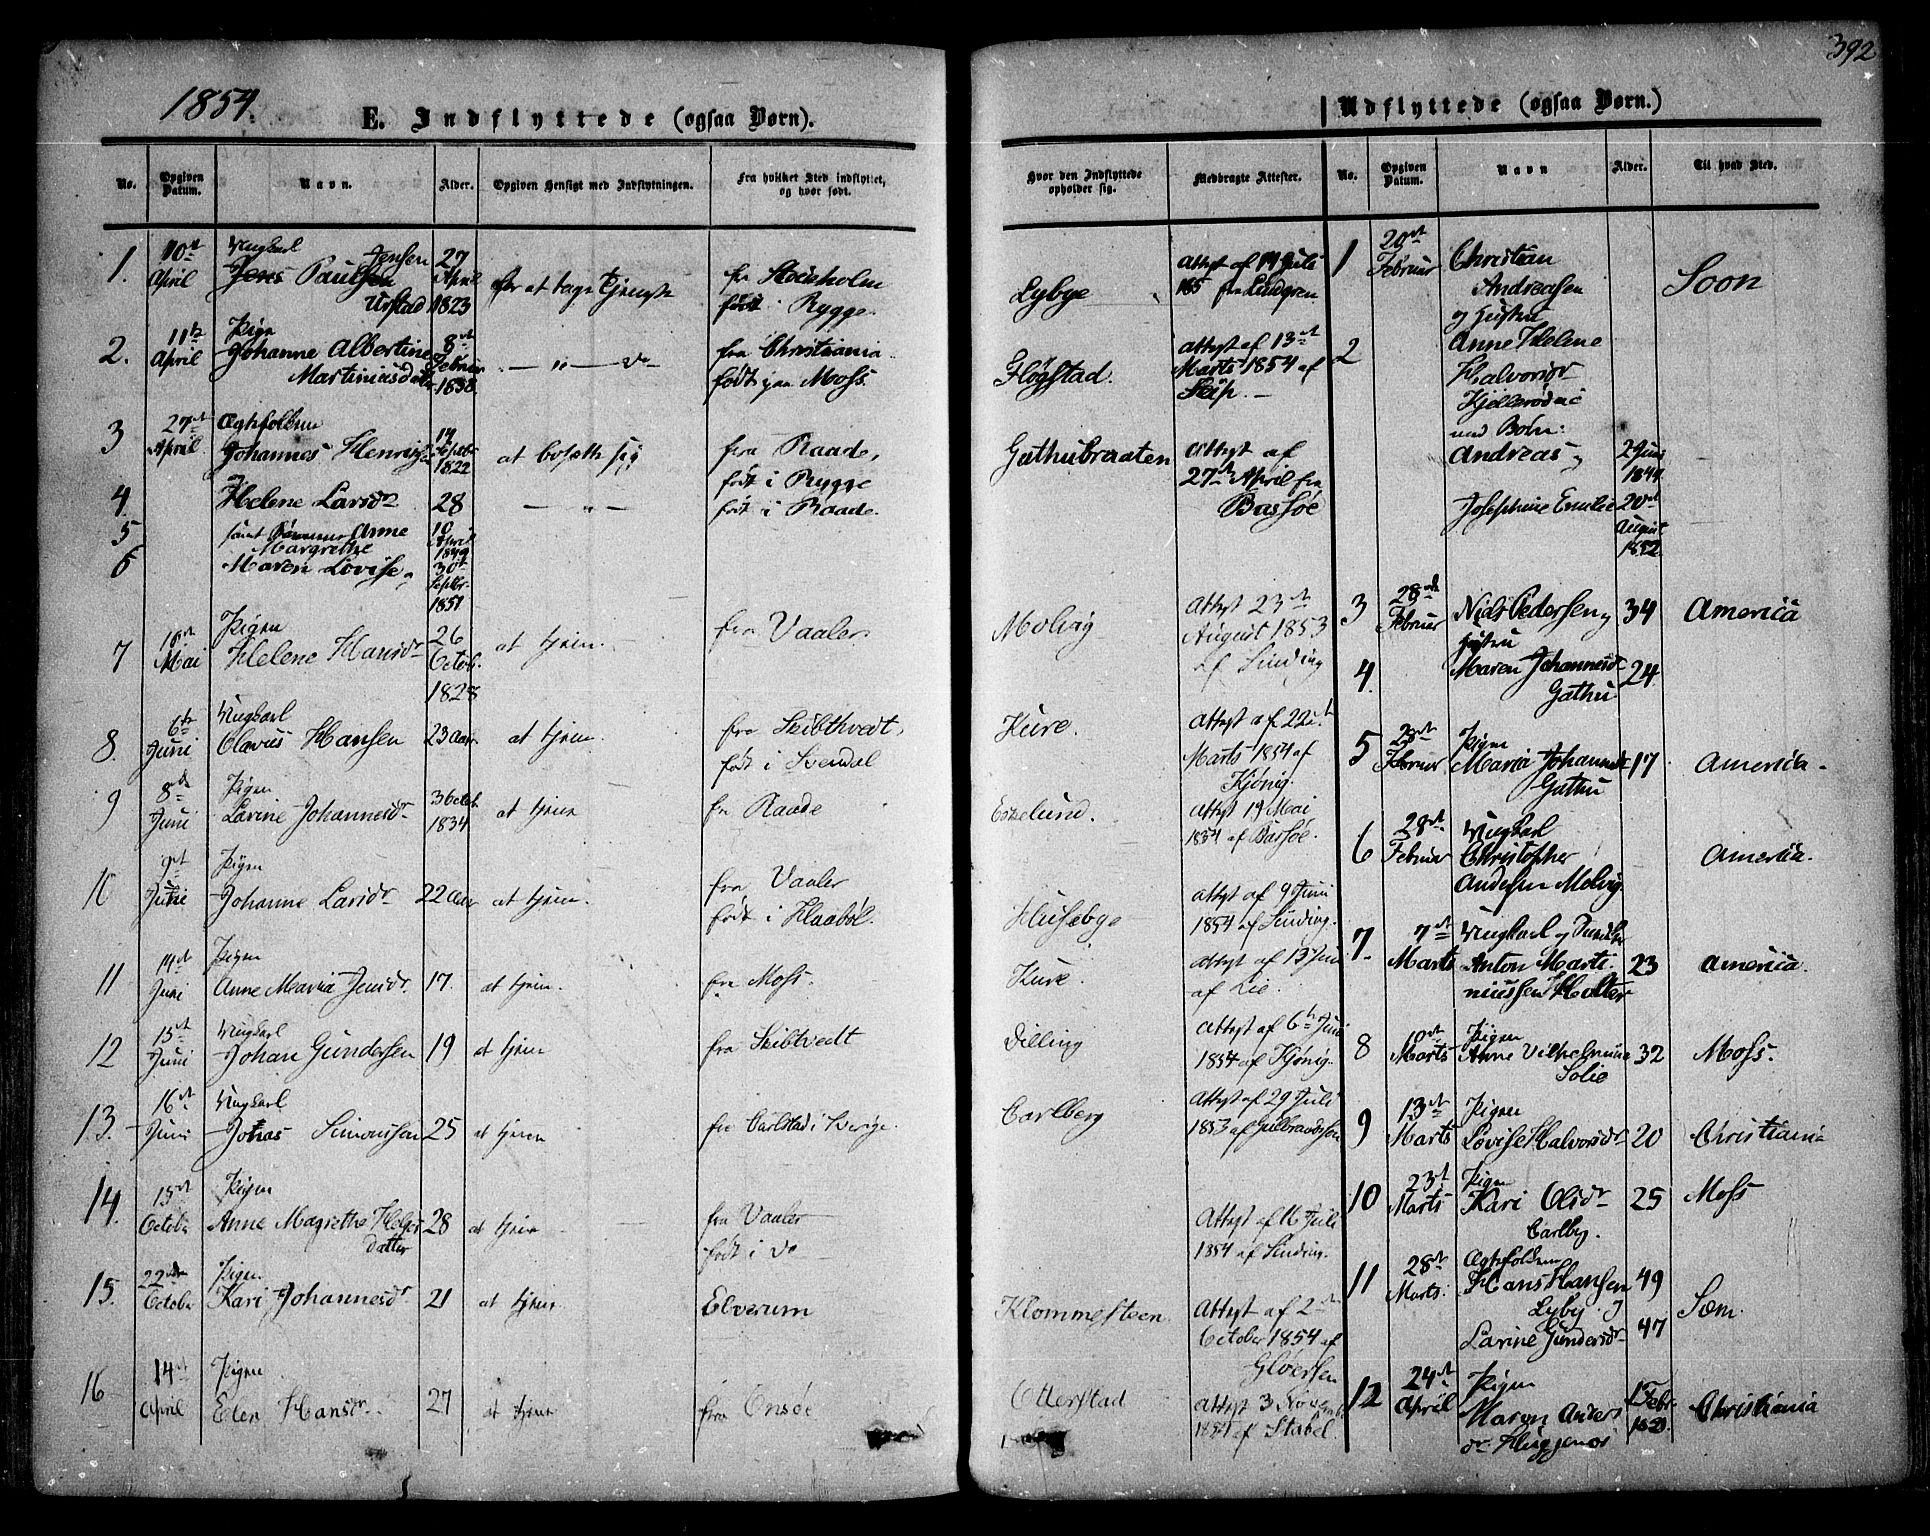 392
1854.
E. Indflyttede (ogsaa Børn).
No.
Opgiven Datum.
Navn.
Alder.
Opgiven Hensigt med Indflytningen.
Fra hvilket Sted indflyttet, og hvor født.
Hvor den Indflyttede opholder sig.
Medbragte Attester.
1.
10de
April
Ungkarl
Jensen
Jens Paulsen
27
April
1823
for at tage Tjeneste
fra Stockholm
født i Rygge.
Lybye
Attest af 14 Juli
185 fra Lundgren
2.
11te
April
Pigen
Johanne Albertine
Martiniusdatter
8de
Februar
1838.
— " — do
fra Christiania
født paa Moss.
Fløgstad.
Attest af 13de
Marts 1854 af
3
27de
April
Ægtefolkene
Johannes Henriksen
14
Septbr
1822
at bosætte sig
fra Raade,
født i Rygge
Guthubraaten
Attest af
27de April fra
Bassøe
4.
og
Helene Larsdr
28
— " —
født i Raade.
5
samt Børnene Anne
Margrethe
10
April
1849
6
Maren Lovise,
30te
Septbr.
1851
7
10de
Mai
Pigen
Helene Hansdr
26
Octob.
1828
at tjene.
fra Vaaler
Molvig
Attest 23de
August 1853
af Sinding
8.
6te
Juni
Ungkarl
Olavus Hansen
23 Aar
at tjene.
fra Skibthvedt,
født i Svendal
Kure.
Attest af 22de
Marts 1854 af
Kjønig.
9
8de
Juni
Pigen
Lavine Johannesdr
3 Octob.
1834
at tjene
fra Raade
Eskelund.
Attest 19 Mai
1854 af Bassøe.
10
9de
Juni
Pigen
Johanne Larsdr
22 Aar
at tjene.
fra Vaaler
født i Haabøl.
Husebye
Attest af 9 Juni
1854 af Sinding.
11
14de
Juni
Pigen
Anne Maria Jensdr
17.
at tjene.
fra Moss.
Kure.
Attest af 13 Juni
af Lie.
12
15de
Juni
Ungkarl
Johan Gundersen
19
at tjene
fra Skibtvedt
Dilling
Attest af 6te Juni
1854 af Kjønig.
13.
16de
Juni
Ungkarl
Johas Simonssen
25
at tjene
fra Carlstad i Sverige.
Carlberg
Attest af 29 Juli
1853 af Gulbrandssen
14.
15de
October
Pigen
Anne Magrethe Helges
datter
28
at tjene
fra Vaaler
født i do
Attest af 16 Juli
1854 af Sinding.
15.
22nde
October
Pigen
Kari Johannesdr
21
at tjene
Elverum
Klommesteen.
Attest af 2de
October 1854 af
Gløersen
16
14de
April
Pigen
Elen Hansdr
27
at tjene
fra Onsøe
Otterstad
Attest 3 Novembr
1854 af Stabel.
Udflyttede (ogsaa Børn.)
No.
Opgiven Datum.
Navn
Alder.
Til hvad Sted.
1
20de
Februar
Christian
Andreasen
og Hustru
Soon
2
Anne Helene
Halvorsdr
Kjellerødeie
med Børn:
Andreas og
2 Juni
1849
Josephine Emilie
20de
August
1852
3
28de
Februar
Niels Pedersen og
Hustru
34
America
4.
Maren Johannesdr
Guthu
24
5
28de
Februar
Pigen
Maria Johannesdr
Guthu
17
America
6
28de
Februar
Ungkarl
Christopher
Andersen Molvig
America.
7.
7de
Marts
Ungkarl og
Anton Marti-
niussen Holter
23
America.
8
10de
Marts
Pigen
Anne Vilhelmine
Solie
32
Moss.
9
13de
Marts
Pigen
Lovise Halvorsdr
20
Christiania
10
23de
Marts
Pigen
Kari Olsdr
Carlberg.
25
Moss
11
28de
Marts.
Ægtefolkene
Hans Hansen
Lyby og
49
Søm.
Lavine Gundersdr
47
12
24de
April
Pigen
Maren Anders
dr Huggenes
1 Febr.
Christiania